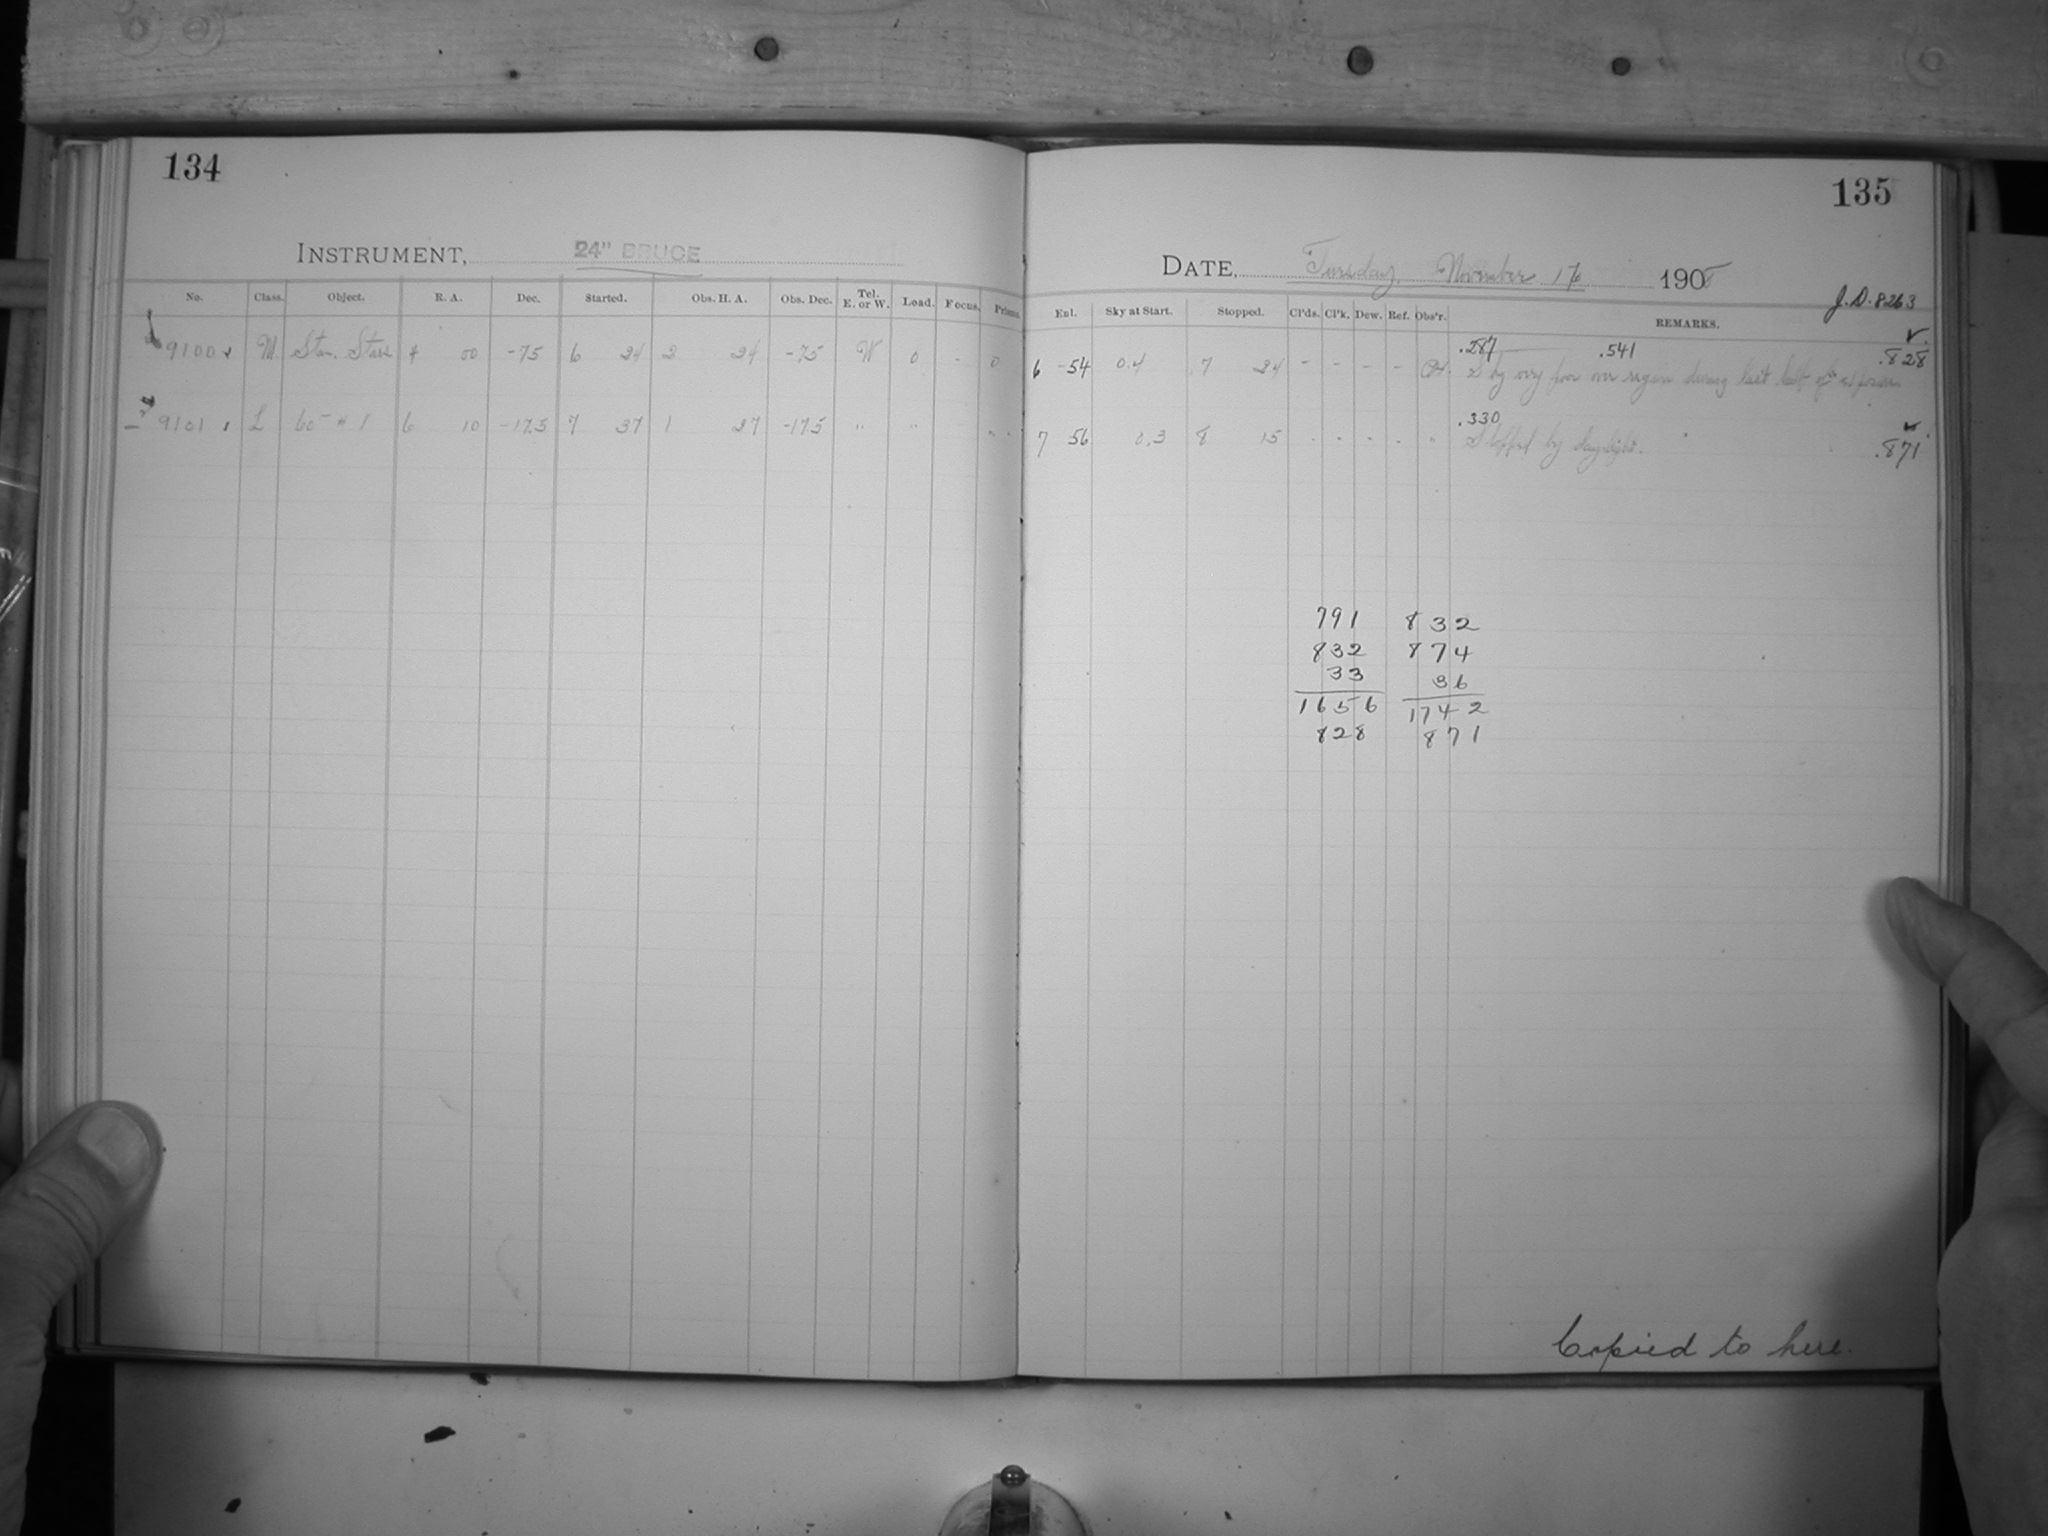 134
INSTRUMENT, 24" BRUCE
No. Class. Object. R. A. Dec. Started. Obs. H. A. Obs. Dec. Tel. E. or W. Load. Focus. Prisms.
9100 M Stan. Stars 4 00 -75 6 24 2 24 -75 W 0 - 0
9101 L 60m #1 6 10 -17.5 7 37 1 27 -17.5 " " " "
135
DATE, Tuesday, November 17 1908
J.D. 8263
Eul. Sky at Start. Stopped. Cl'ds. Cl'k. Dew. Ref. Obs'r. REMARKS.
.287 .541 .828
6 54 0.4 7 24 - - - - Sky very poor over region during last half of exposure
.330 .871
7 56 0.3 8 15 - - - - " Stopped by daylight.
791 832
832 874
33 36
1656 1742
828 871
Copied to here.